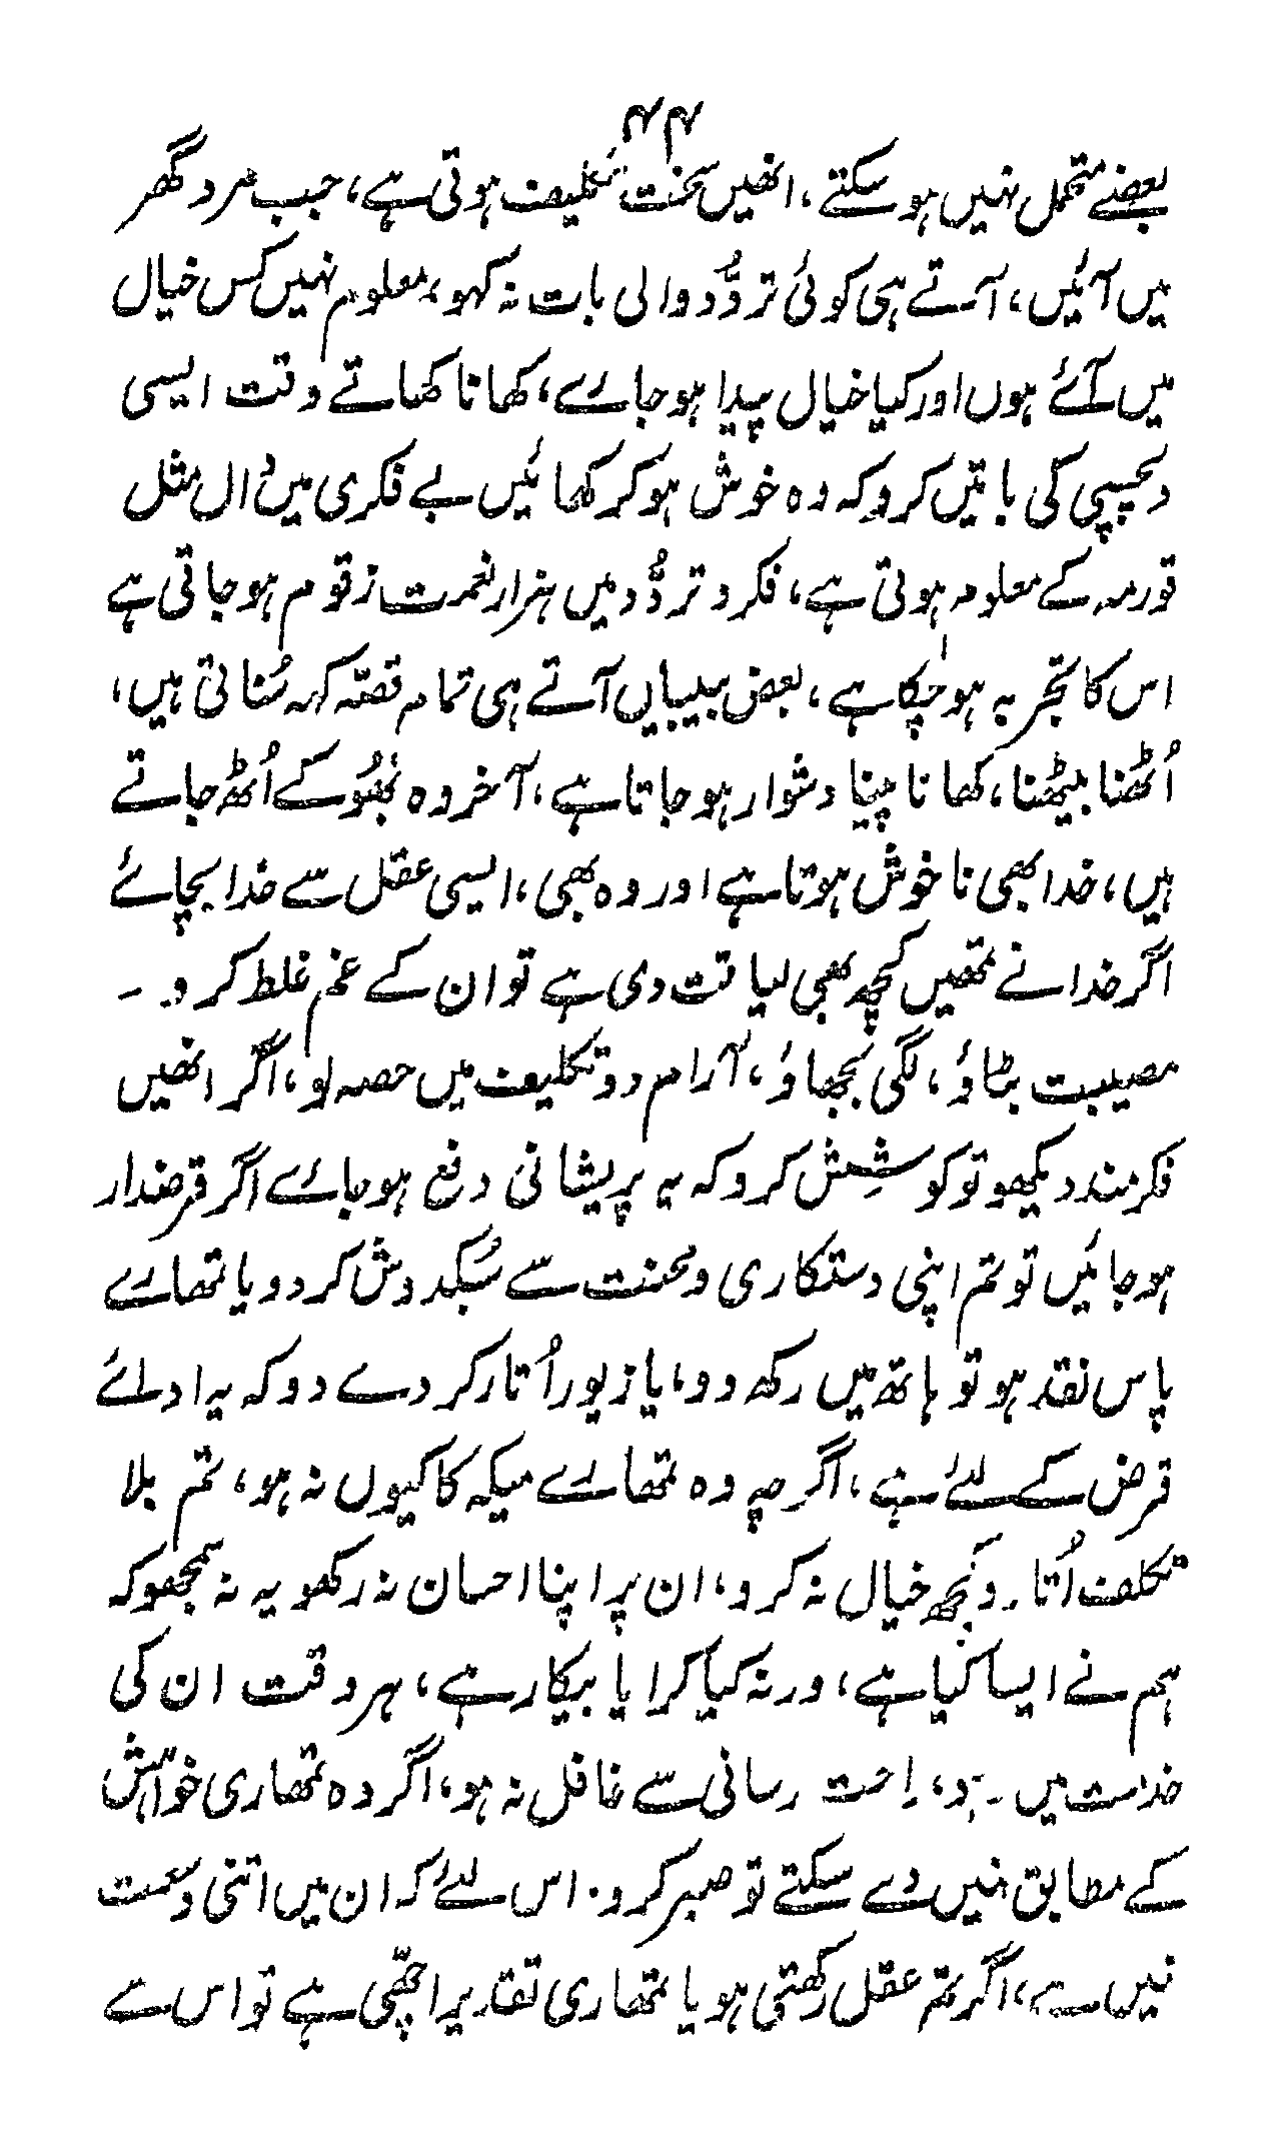 ۴۴
بعضے متحمل نہیں ہو سکتے، انھیں سخت تکلیف ہوتی ہے، جب مرد گھر
میں آئیں، آتے ہی کوئی تردُّد والی بات نہ کہو، معلوم نہیں کس خیال
میں آئے ہوں اور کیا خیال پیدا ہو جاے، کھانا کھاتے وقت ایسی
دلچسپی کی باتیں کرو کہ وہ خوش ہو کر کھائیں بے فکری میں دال مثل
قورمہ کے معلوم ہوتی ہے، فکر و تردُّد میں ہزار نعمت زقوم ہو جاتی ہے
اس کا تجربہ ہو چکا ہے، بعض بیبیاں آتے ہی تمام قصّہ کہہ سُناتی ہیں،
اُٹھنا بیٹھنا، کھانا پینا دشوار ہو جاتا ہے، آخر وہ بھُوکے اُٹھ جاتے
ہیں، خدا بھی ناخوش ہوتا ہے اور وہ بھی، ایسی عقل سے خدا بچائے
اگر خدا نے تمھیں کچھ بھی لیاقت دی ہے تو ان کے غم غلط کرو۔
مصیبت بٹاؤ، لگی بُجھاؤ، آرام و تکلیف میں حصہ لو، اگر انھیں
فکر مند دیکھو تو کوشِش کرو کہ یہ پریشانی دفع ہو جاے اگر قرضدار
ہو جائیں تو تم اپنی دستکاری و محنت سے سُبکدوش کر دو یا تمھارے
پاس نقد ہو تو ہاتھ میں رکھ دو، یا زیور اُتار کر دے دو کہ یہ ادائے
قرض کے لئے ہے، اگرچہ وہ تمھارے میکہ کا کیوں نہ ہو، تم بلا
تکلف اُتار دو کچھ خیال نہ کرو، ان پر اپنا احسان نہ رکھو یہ نہ سمجھو کہ
ہم نے ایسا کیا ہے، ورنہ کیا کرایا بیکار ہے، ہر وقت ان کی
خدمت میں رہو، راحت رسانی سے غافل نہ ہو، اگر وہ تمھاری خواہش
کے مطابق نہیں دے سکتے تو صبر کرو۔ اس لئے کہ ان میں اتنی وسعت
نہیں ہے، اگر تم عقل رکھتی ہو یا تمھاری تقدیر اچھّی ہے تو اس سے